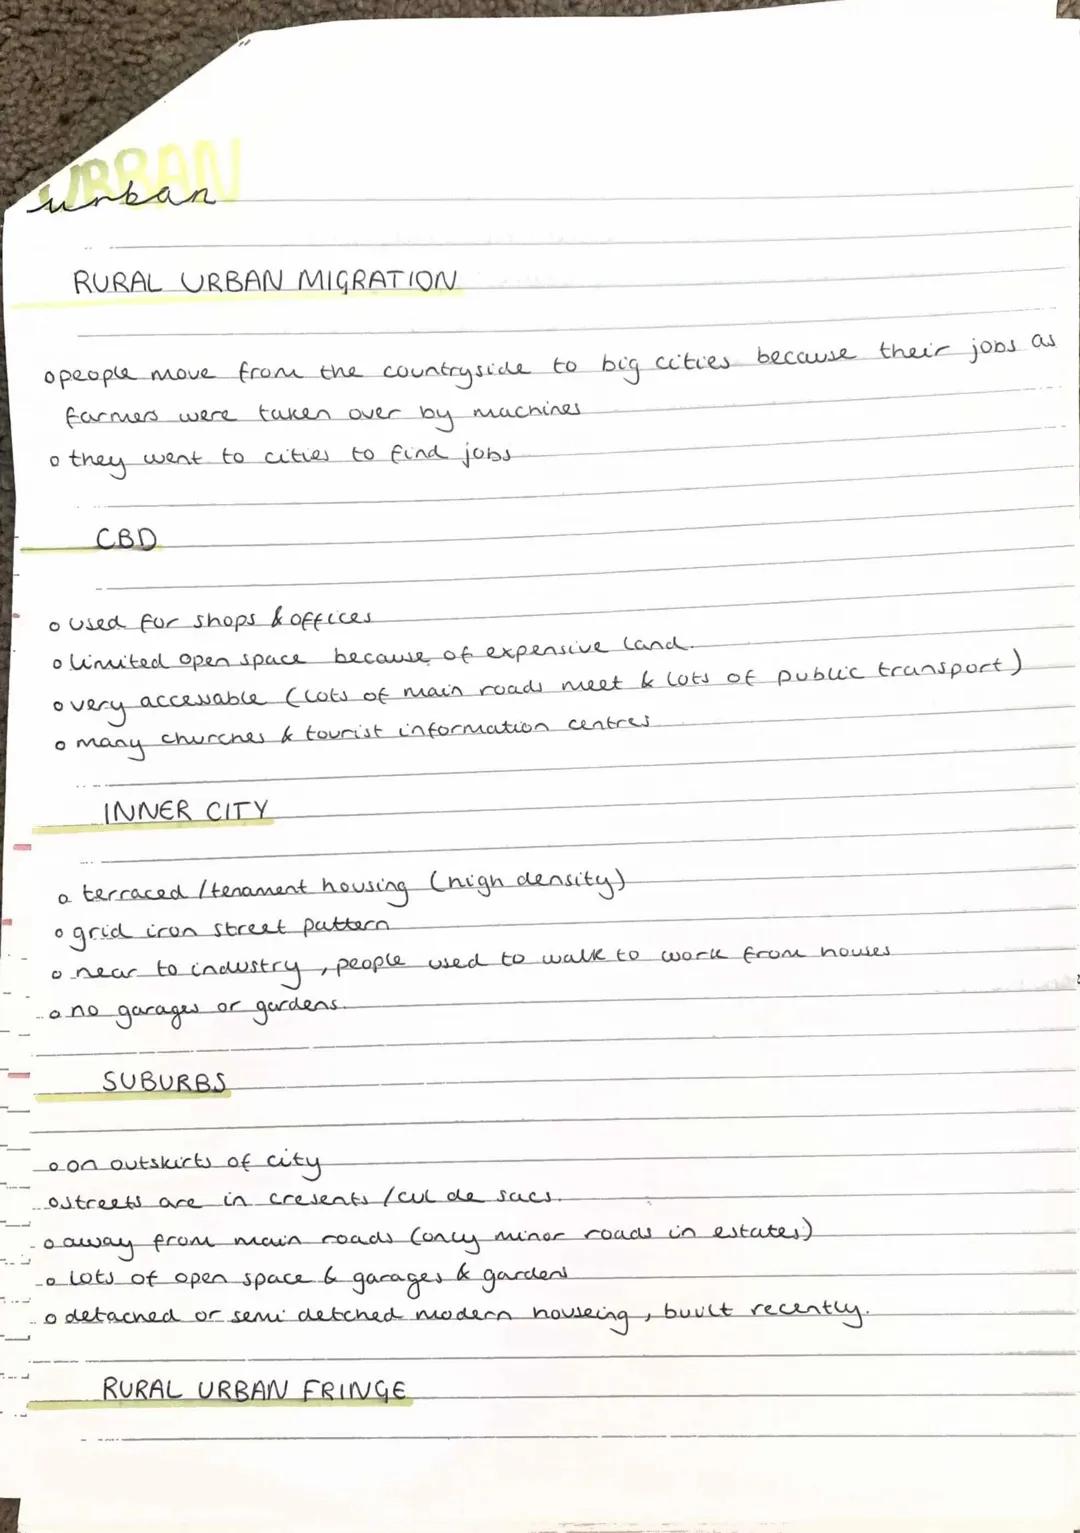 URBAN
urban
RURAL URBAN MIGRATION
o people move from the countryside to big cities because their jobs as
farmers were taken over by machines
o they went to cities to find jobs
CBD
o used for shops & offices
o limited open space because of expensive land.
o very accessable (lots of main roads meet & lots of public transport)
o many churches & tourist information centres
INNER CITY
o terraced / tenament housing (high density)
o grid iron street pattern
o near to industry, people used to walk to work from houses
o no garages or gardens.
SUBURBS
o on outskirts of city
o streets are in cresents / cul de sacs.
o away from main roads (only minor roads in estates)
o lots of open space & garages & gardens
o detached or semi detched modern houseing, built recently.
RURAL URBAN FRINGE